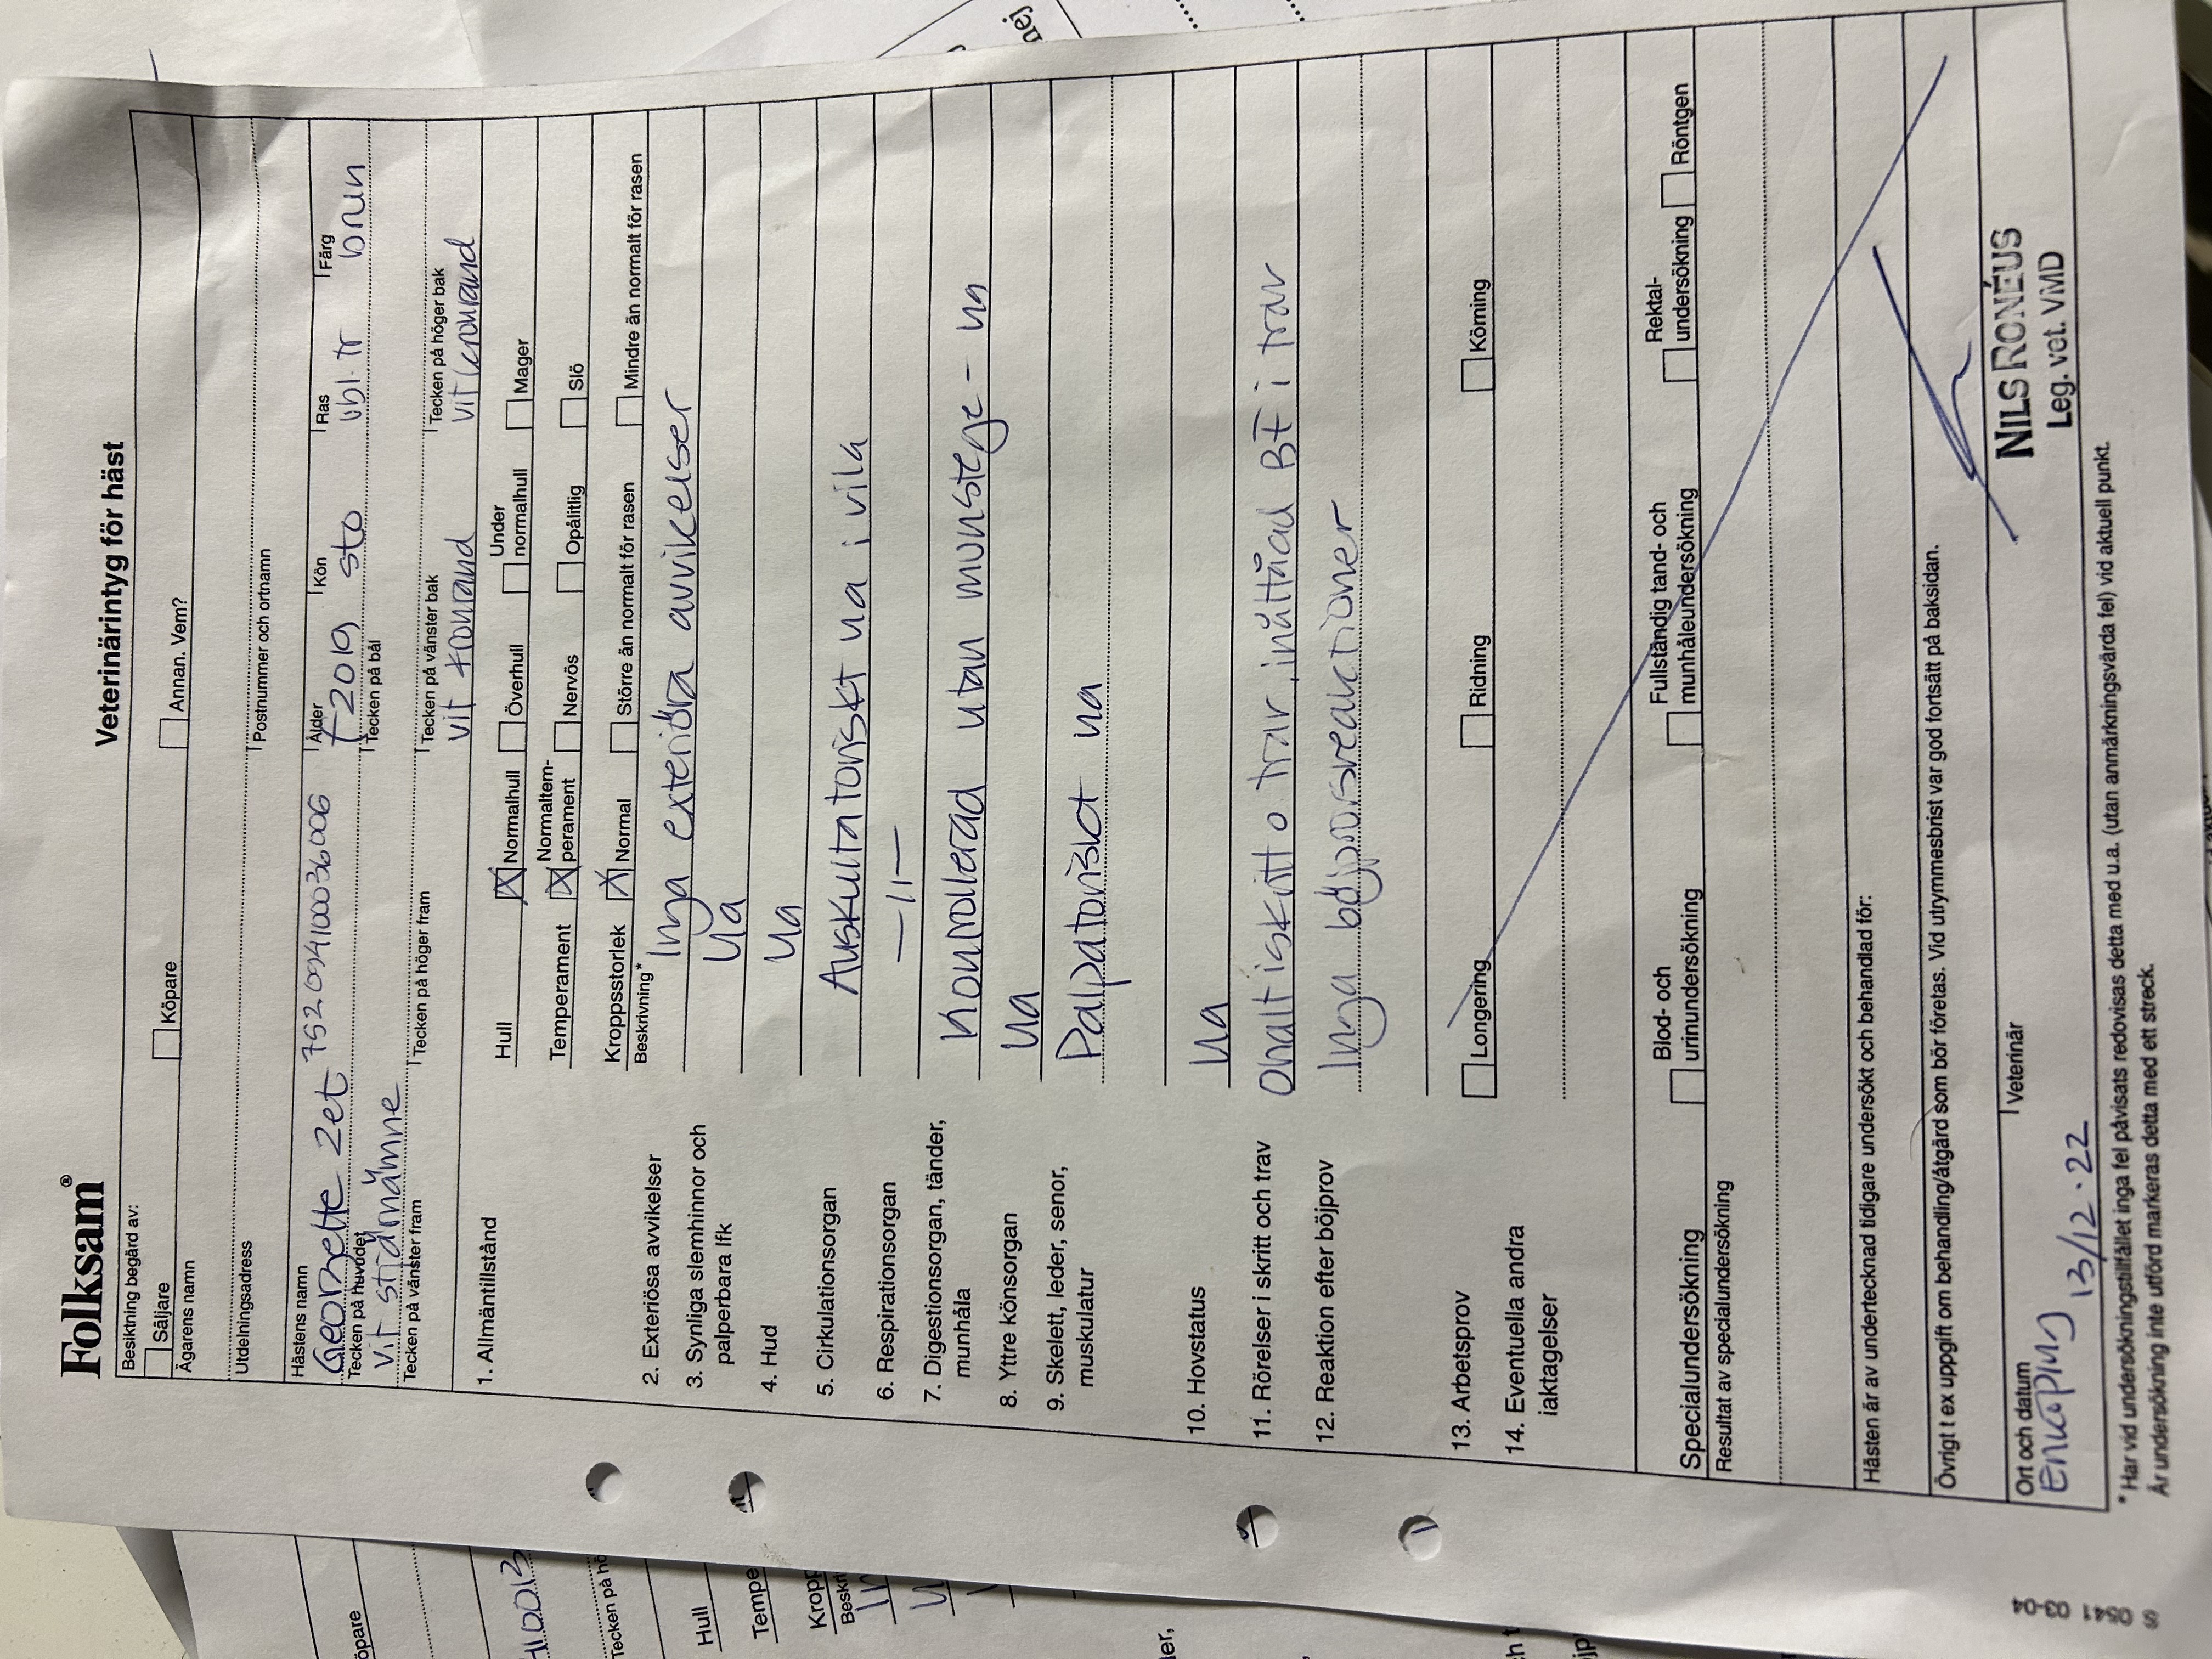 Folksam®
Veterinärintyg för häst
Besiktning begärd av:
Säljare Köpare Annan. Vem?
Ägarens namn
Utdelningsadress Postnummer och ortnamn
Hästens namn Ålder Kön Ras Färg
Georgette Zet 752094100036006 f 2019 sto vbl. tr brun
Tecken på huvudet Tecken på bål
vit stjärnämne
Tecken på vänster fram Tecken på höger fram Tecken på vänster bak Tecken på höger bak
vit kronrand vit kronrand
1. Allmäntillstånd Hull X Normalhull Överhull Under normalhull Mager
Temperament X Normaltem-perament Nervös Opålitlig Slö
Kroppsstorlek X Normal Större än normalt för rasen Mindre än normalt för rasen
Beskrivning*
2. Exteriösa avvikelser Inga exteriöra avvikelser
3. Synliga slemhinnor och ua
palperbara lfk
4. Hud ua
5. Cirkulationsorgan Auskultatoriskt ua i vila
6. Respirationsorgan —11—
7. Digestionsorgan, tänder, Kontrollerad utan munstege - ua
munhåla
8. Yttre könsorgan ua
9. Skelett, leder, senor, Palpatoriskt ua
muskulatur
10. Hovstatus ua
11. Rörelser i skritt och trav Ohalt i skritt o trav, inåttåad BF i trav
12. Reaktion efter böjprov Inga böjprovsreaktioner
13. Arbetsprov Longering Ridning Körning
14. Eventuella andra
iaktagelser
Specialundersökning Blod- och urinundersökning Fullständig tand- och munhåleundersökning Rektal-undersökning Röntgen
Resultat av specialundersökning
Hästen är av undertecknad tidigare undersökt och behandlad för:
Övrigt t ex uppgift om behandling/åtgärd som bör företas. Vid utrymmesbrist var god fortsätt på baksidan.
Ort och datum Veterinär
Enköping 13/12·22
NILS RONÉUS
Leg. vet. VMD
* Har vid undersökningstillfället inga fel påvisats redovisas detta med u.a. (utan anmärkningsvärda fel) vid aktuell punkt.
Är undersökning inte utförd markeras detta med ett streck.
S 0541 03-04
nej
öpare
Tecken på hö
Hull
Tempe
Kropp
Beskri